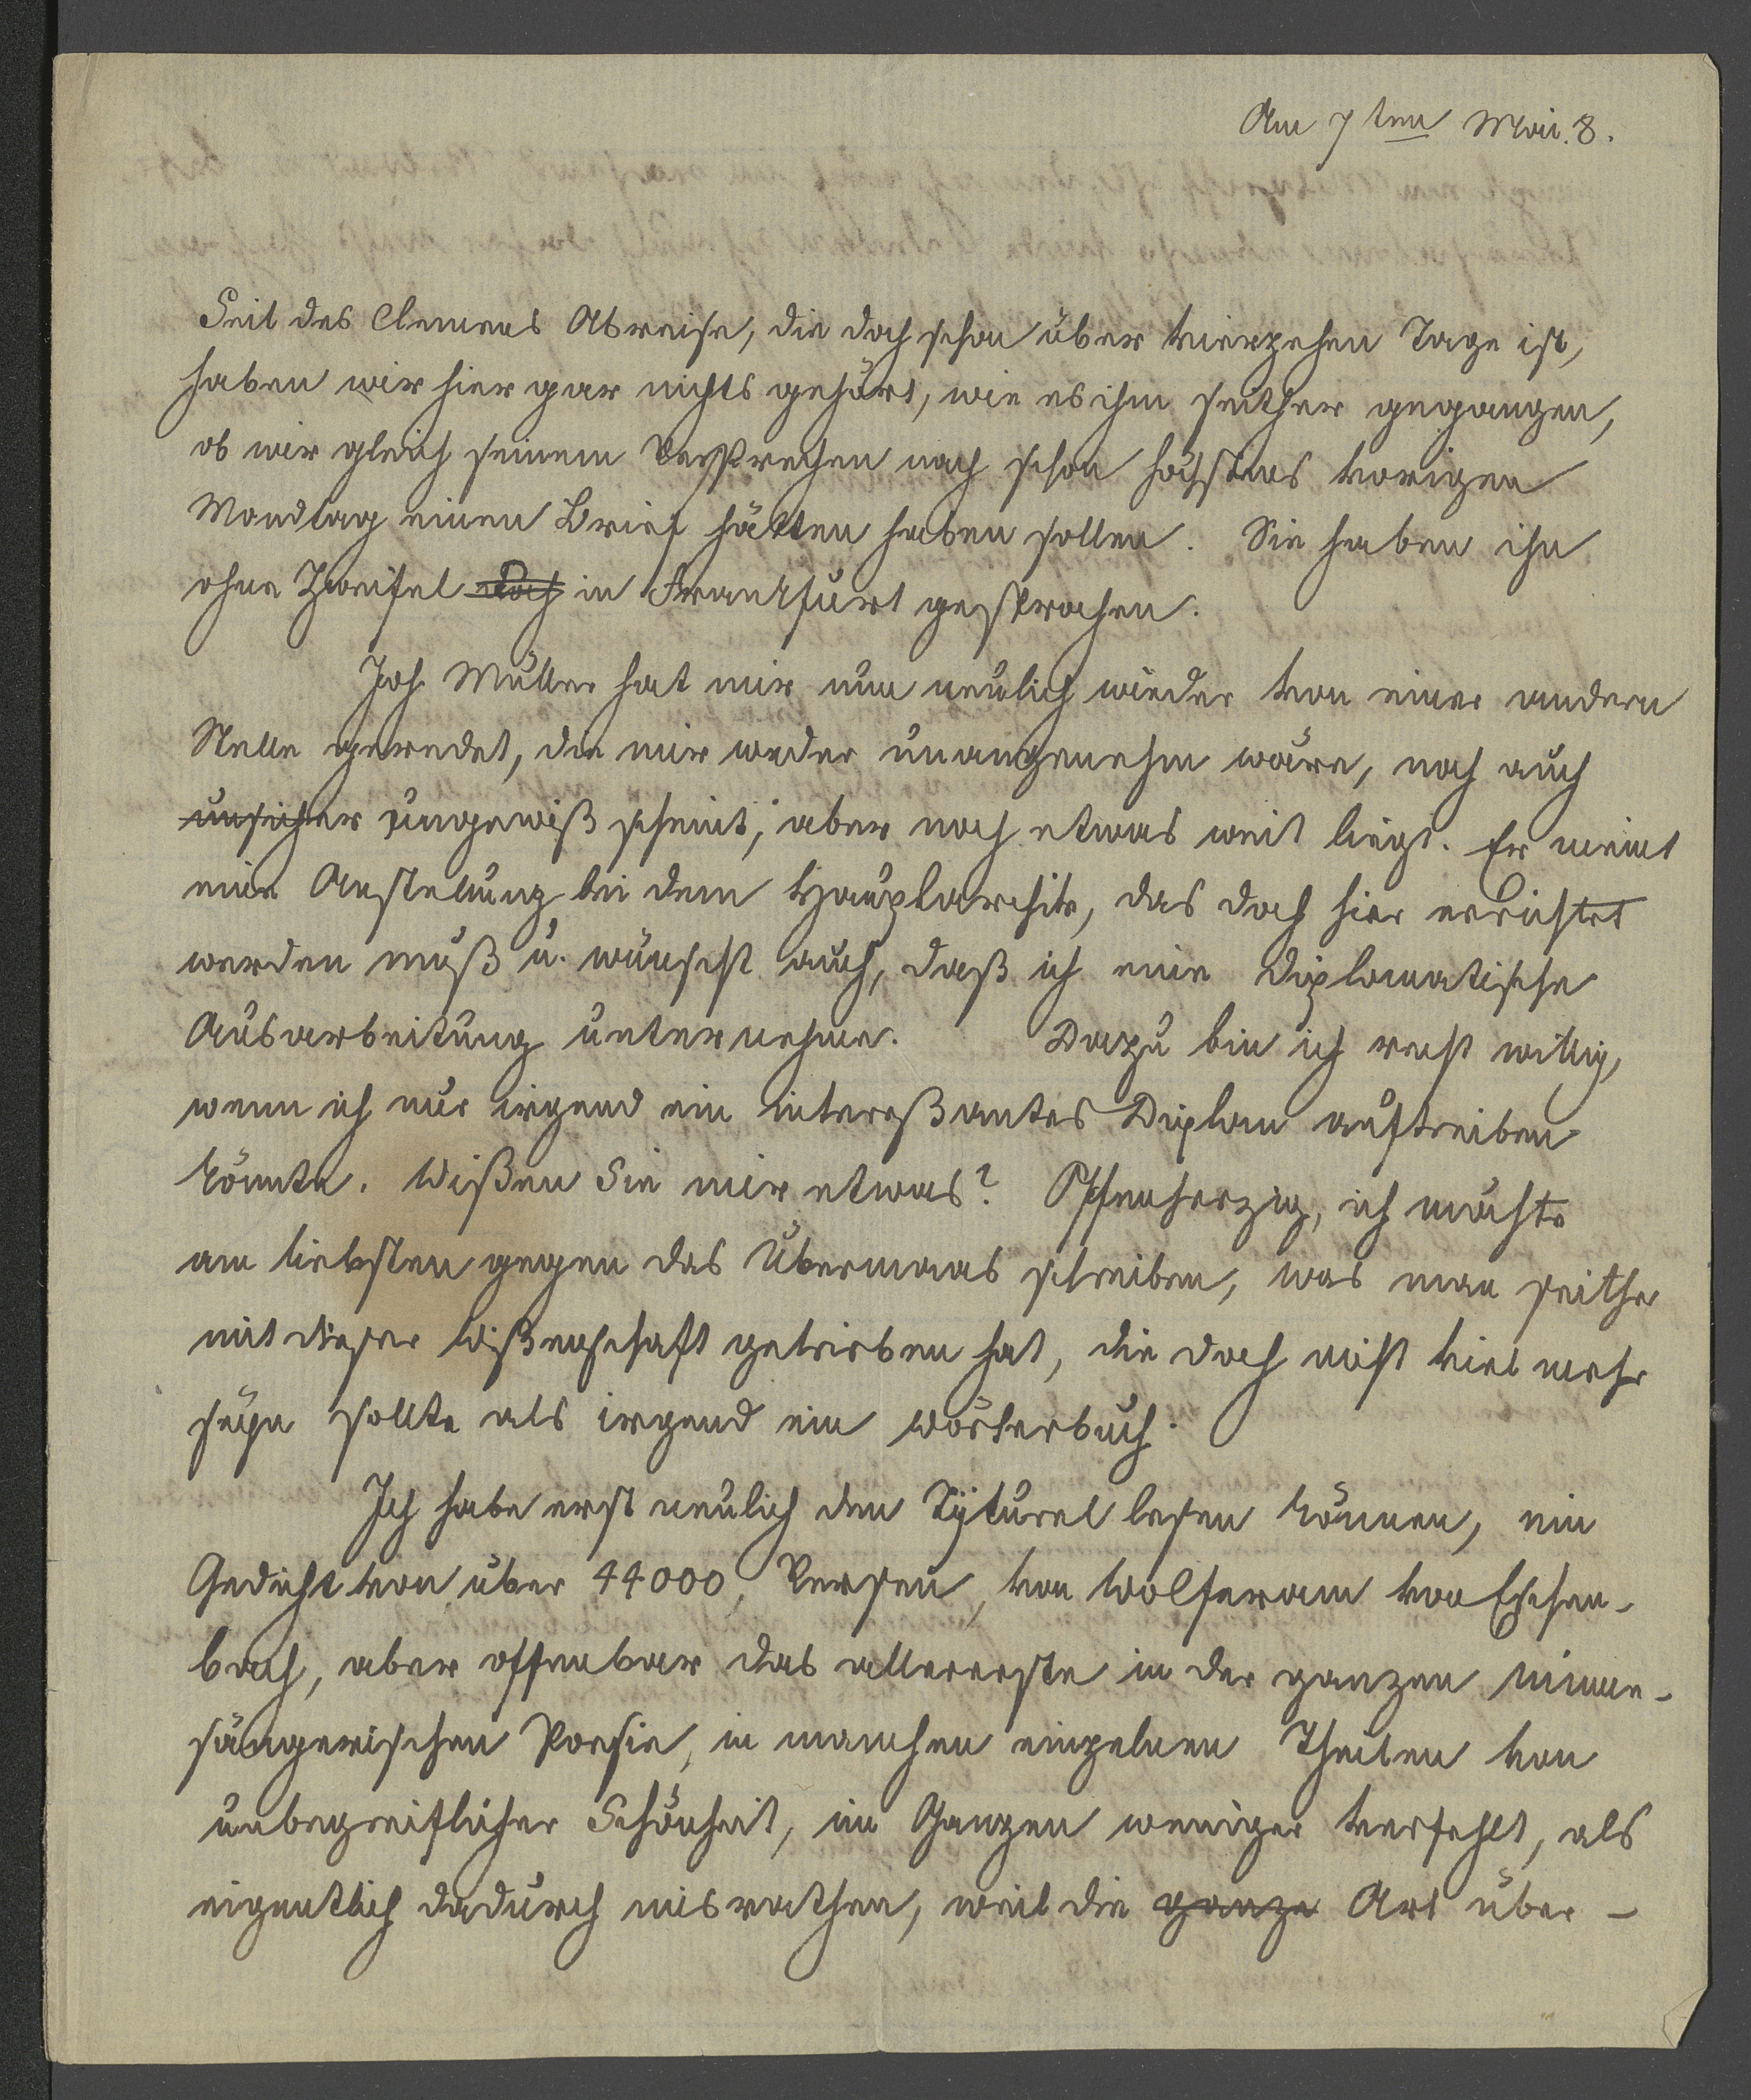 Am 7ten Mai. 8.
Seit des Clemens Abreise, die doch schon über vierzehen Tage ist,
haben wir hier gar nichts gehört, wie es ihm seither gegangen,
ob wir gleich seinem Versprechen nach schon höchstens vorigen
Mondtag einen Brief hätten haben sollen. Sie haben ihn
ohne Zweifel doch in Frankfurt gesprochen.
Joh Müller hat mir nun neulich wieder von einer andern
Stelle geredet, die mir weder unangenehm wäre, noch auch
unsicher ungewiß scheint, aber noch etwas weit liegt. Er meint
eine Anstellung bei dem Hauptarchiv, das doch hier errichtet
werden muß u. wünscht auch, daß ich eine diplomatische
Ausarbeitung unternehme. Dazu bin ich recht willig,
wenn ich nur irgend ein intereßantes Diplom auftreiben
könnte. Wißen Sie mir etwas? Offenherzig, ich möchte
am liebsten gegen das Übermaas schreiben, was man seither
mit dieser Wißenschaft getrieben hat, die doch nicht viel mehr
seyn sollte als irgend ein Wörterbuch.
Ich habe erst neulich den Tyturel lesen können, ein
Gedicht von über 44000, Versen, von Wolferam von Eschen-
bach, aber offenbar das allererste in der ganzen minne-
sängerischen Poesie, in manchen einzelnen Theilen von
unbegreiflicher Schönheit, im Ganzen weniger verfehlt, als
eigentlich dadurch misrathen, weil die ganze Art über-